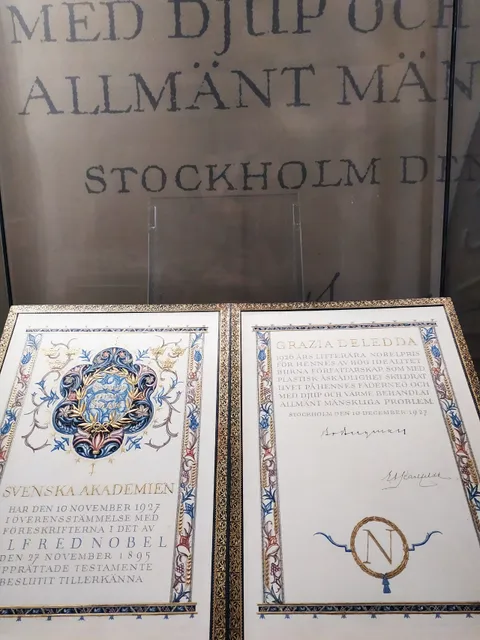 MED DJUP OCH
ALLMÄNT MÄN
STOCKHOLM DEN
SVENSKA AKADEMIEN
HAR DEN 10 NOVEMBER 1927
I ÖVERENSSTÄMMELSE MED
FÖRESKRIFTERNA I DET AV
LFRED NOBEL
DEN 27 NOVEMBER 1895
PPRÄTTADE TESTAMENTE
BESLUTIT TILLERKÄNNA
GRAZIA DELEDDA
1926 ÅRS LITTERÄRA NOBELPRIS
FÖR HENNES AV HÖG IDEALITET
BURNA FÖRFATTARSKAP SOM MED
PLASTISK ÅSKÅDLIGHET SKILDRAT
LIVET PÅ HENNES FÄDERNEÖ OCH
MED DJUP OCH VÄRME BEHANDLAT
ALLMÄNT MÄNSKLIGA PROBLEM.
STOCKHOLM DEN 10 DECEMBER 1927
N